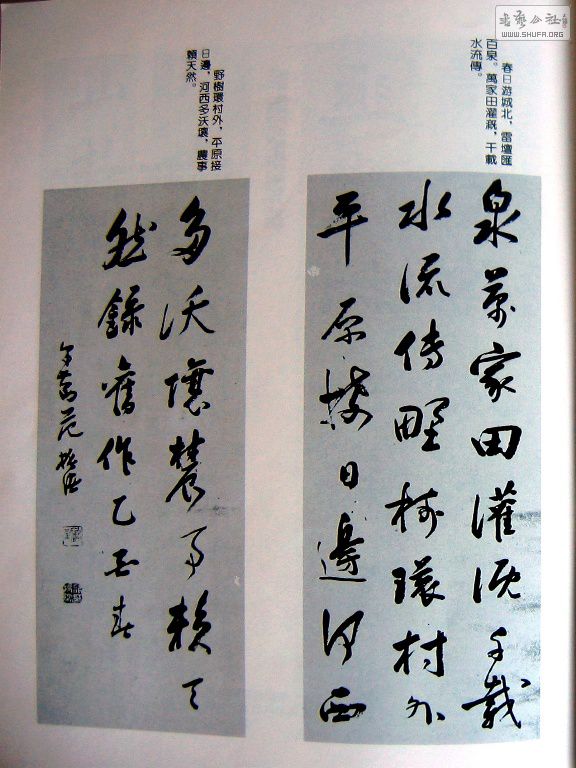 書藝公社
WWW.SHUFA.ORG
春日游城北，雷壇匯
百泉。萬家田灌溉，千載
水流傳。
泉萬家田灌溉千載
水流傳野樹環村外
平原接日邊河西
野樹環村外，平原接
日邊，河西多沃壤，農事
賴天然。
多沃壤農事賴天
然錄舊作乙丑春
范振緒